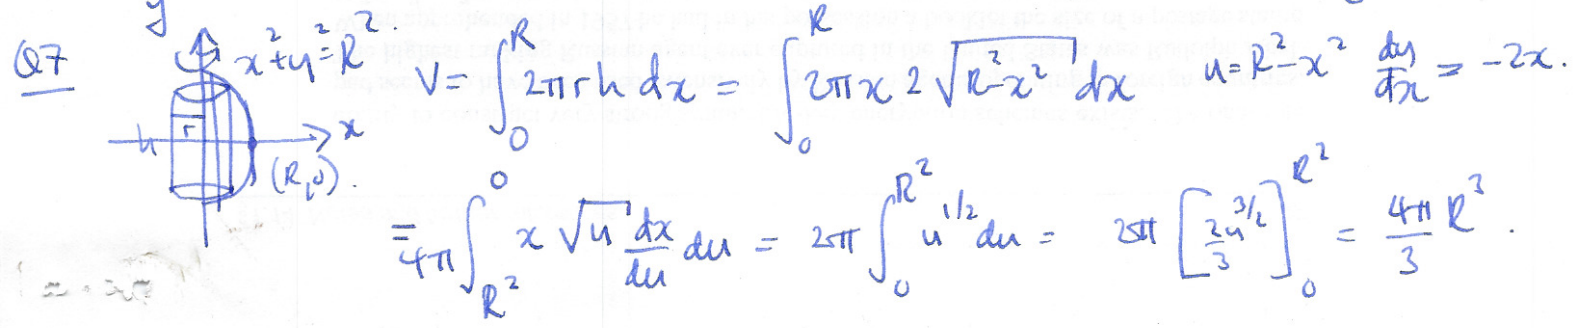 y
Q7 x²+y²=R². V = ∫₀ᴿ 2πrh dx = ∫₀ᴿ 2πx 2√(R²-x²) dx u=R²-x² du/dx = -2x.
h r x
(R,0).
= 4π ∫_{R²}^{0} x √u dx/du du = 2π ∫₀^{R²} u^{1/2} du = 2π [2/3 u^{3/2}]₀^{R²} = 4π/3 R³.